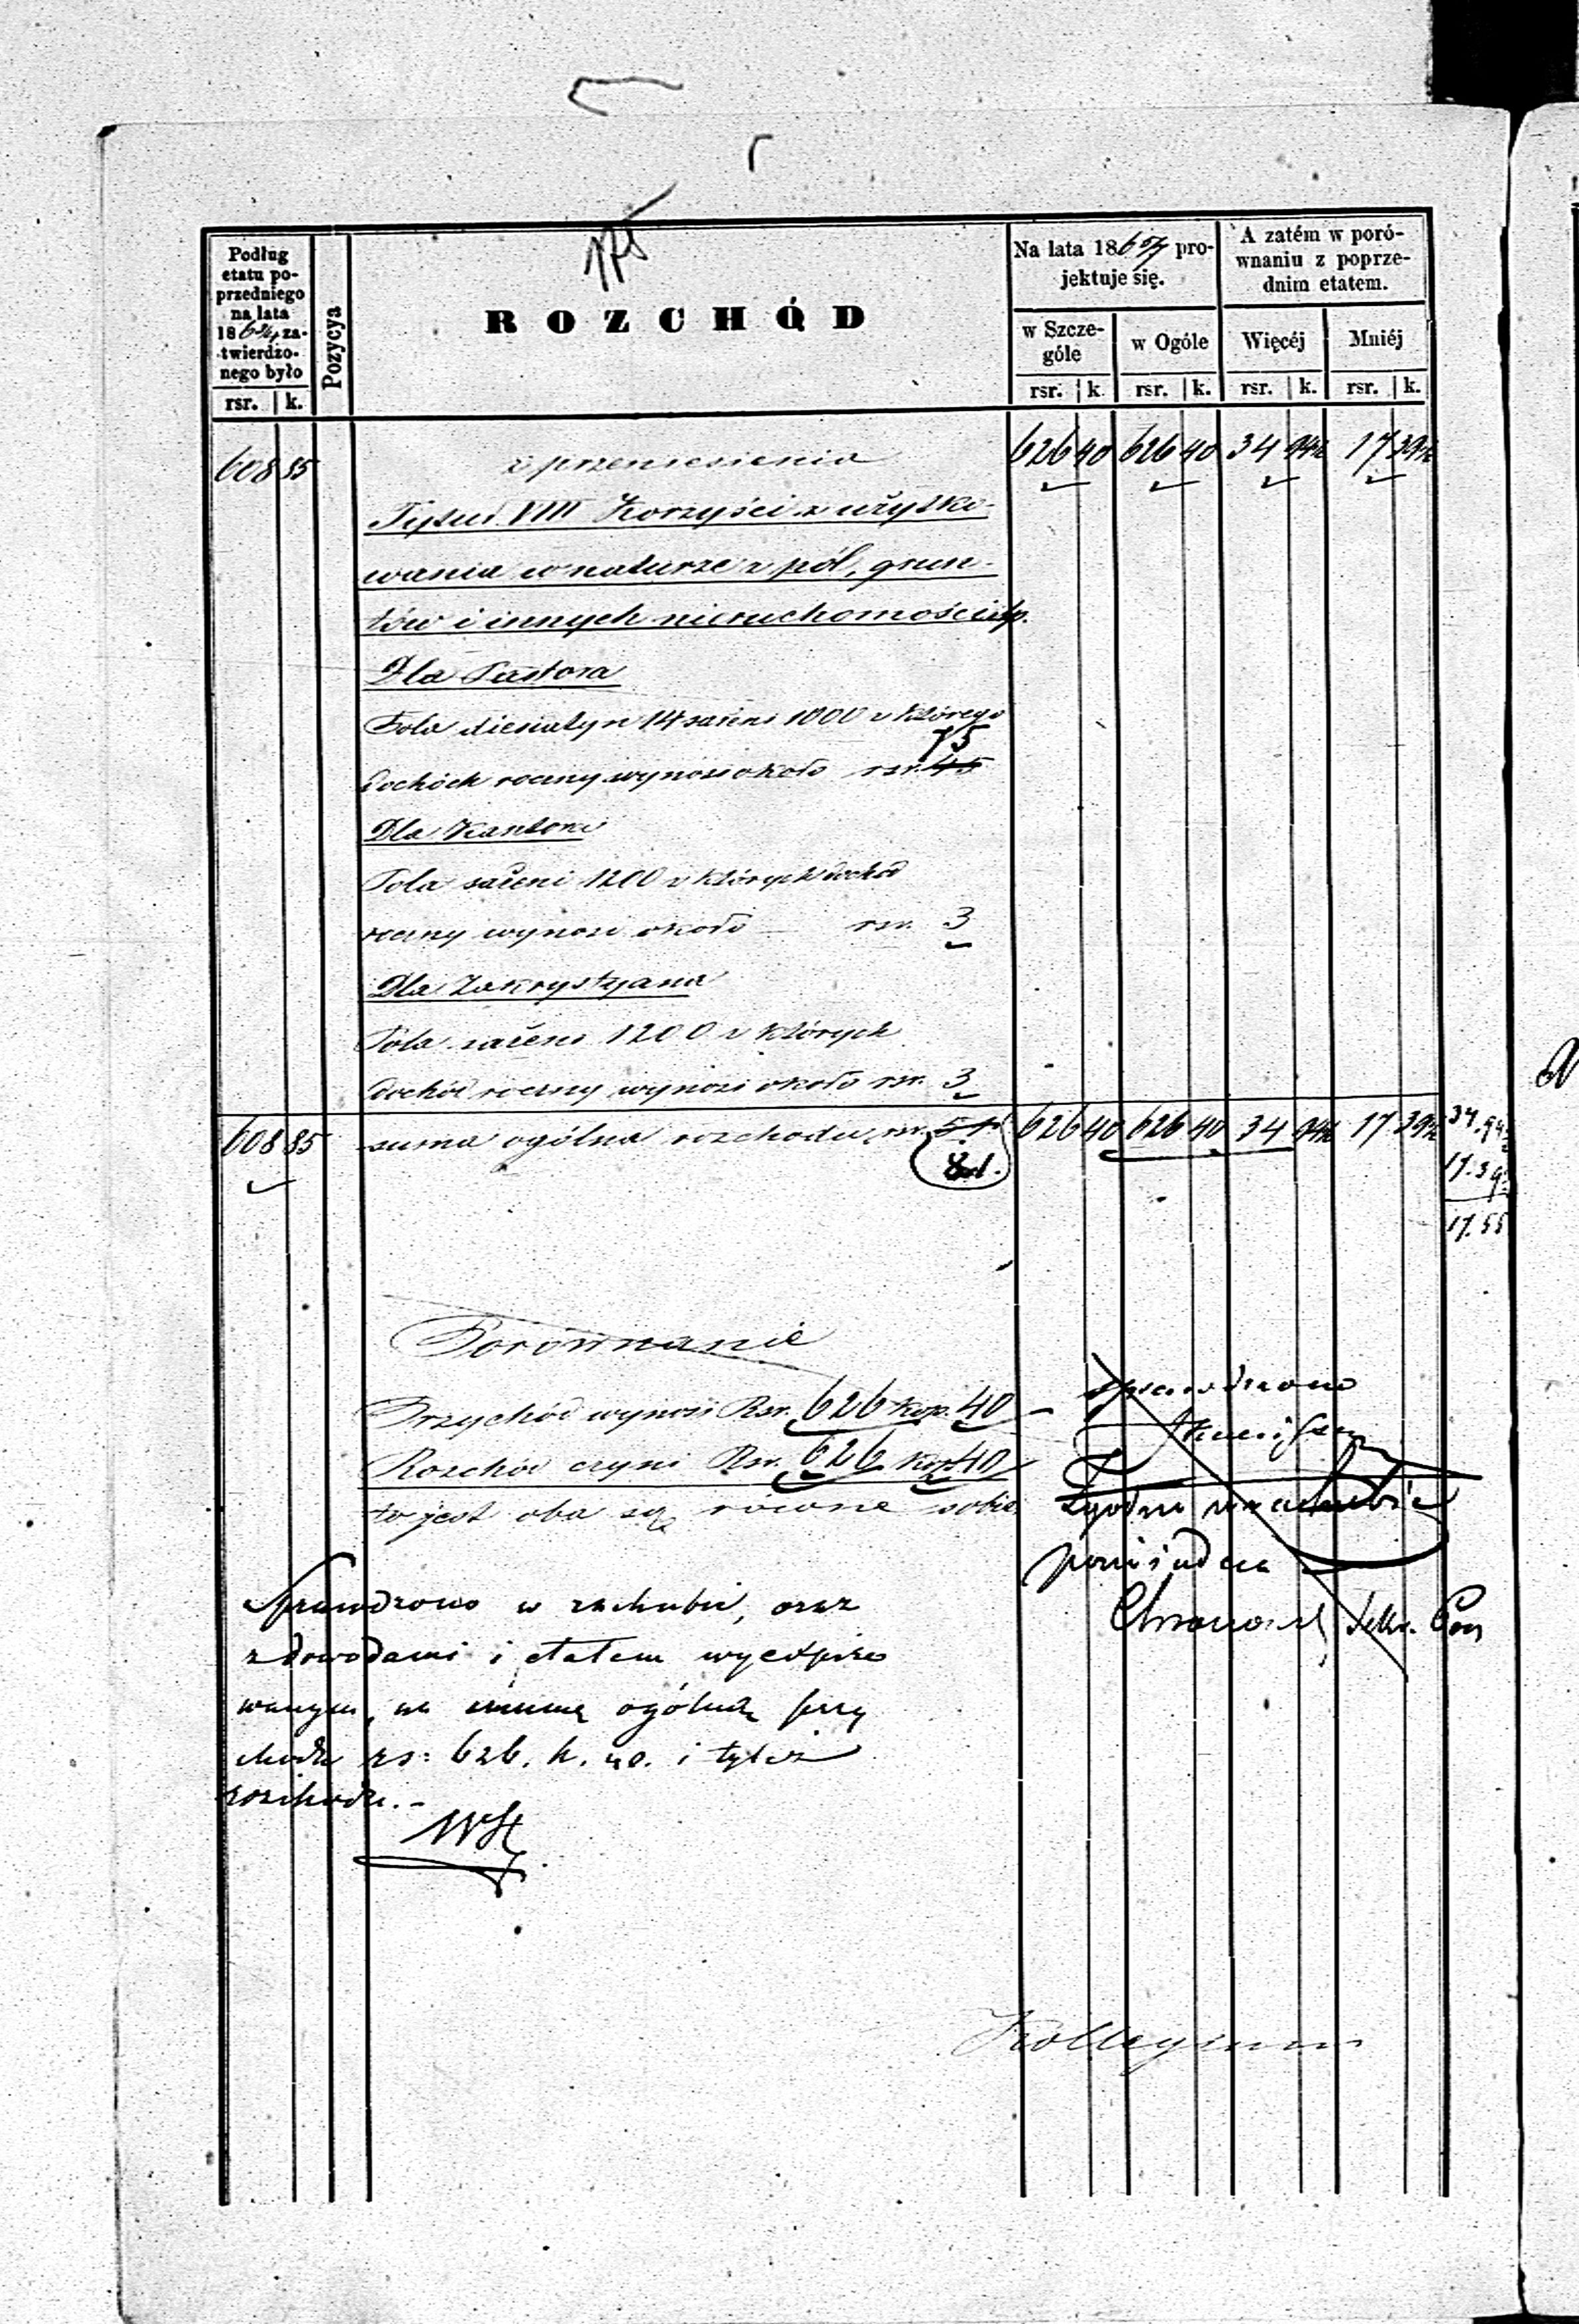 Podług etatu poprzedniego na lata 186 zatwierdzonego było
rsr. k.
Pozycya
ROZCHÓD
Na lata 186 projektuje się.
w Szczególe
w Ogóle
rsr. k. rsr. k.
A zatém w porównaniu z poprzednim etatem.
Więcéj
Mniéj
rsr. k. rsr. k.
608 85 z przeniesienia 626 40 626 40 34 94½ 17 39½
Tytuł VIII Korzyści z użytko-
wania w naturze z pól, grun-
tów i innych nieruchomości
Dla Pastora
Pola diesiatyn 14 sażeni 1000 z którego
75
dochód roczny wynosi około rsr. 45
Dla Kantora
Pola sażeni 1200 z których dochód
roczny wynosi około — rsr. 3
Dla Zakrystyana
Pola sażeni 1200 z których
dochód roczny wynosi około rsr. 3
608 85 suma ogólna rozchodu rsr. 51 626 40 626 40 34 94½ 17 39½
81.
34.94½
17.39½
17.55
Porównanie
Przychód wynosi Rsr. 626 kop. 40
Rozchód czyni Rsr. 626 kop 40
to jest oba są równe sobie
Sprawdzono
Sprawdzono w rachubie, oraz
z dowodami i etatem wyexpiro
wanym, na summę ogólną przy
chodu rs: 626. k. 40. i tyleż
rozchodu.-
Kollegium